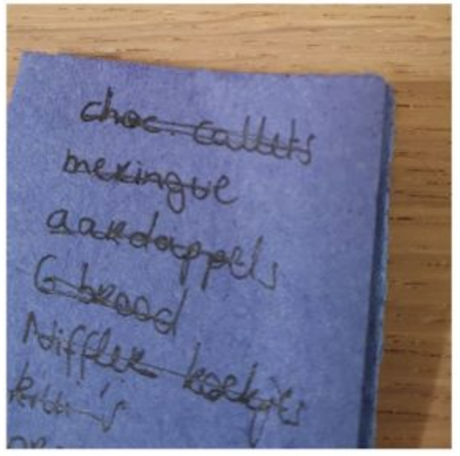 choc. callets
meringue
aardappels
G brood
Niffler koekjes